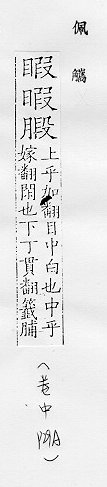 佩觿
睱暇腶
上乎加翻目中白也中乎
嫁翻閑也下丁貫翻籤脯
(卷中 P9A)